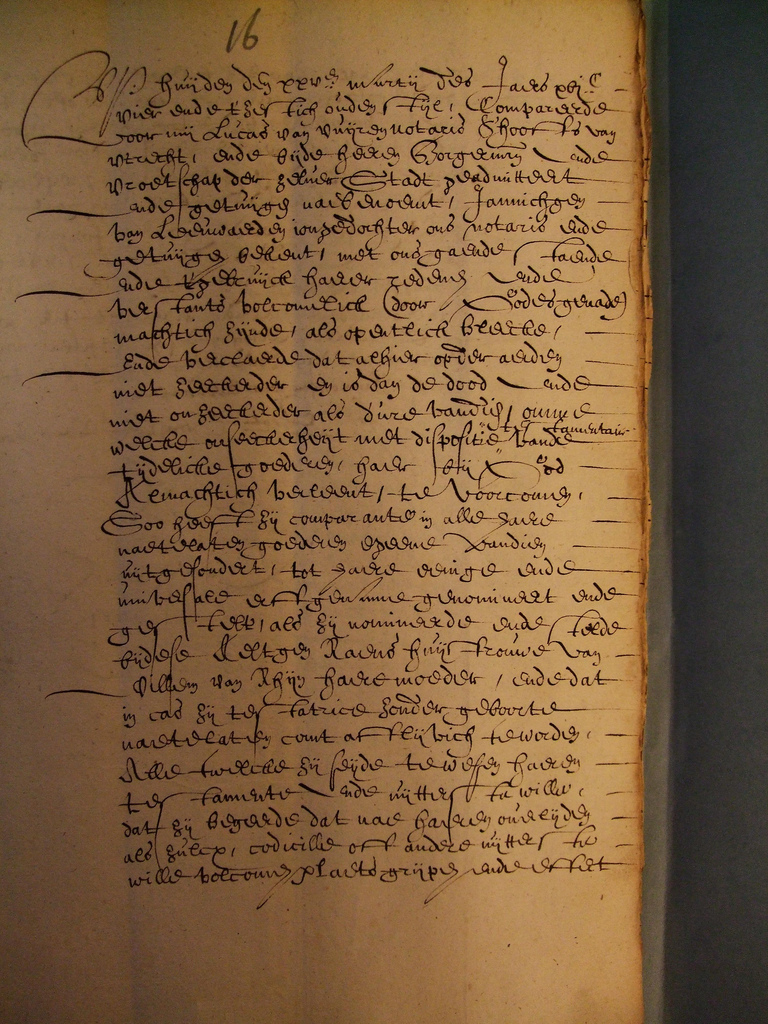 16
Op huijden den xxven martij des Jaers xvjC
vier ende tzestich ouden stijl, Compareerde
voor mij Lucas van Vuijren notaris Shoofs van
Utrecht, ende bijde heeren Borgermrn ende
Vroetschap der zelver Stadt geadmitteert
ende getuijgen naebenoemt, Jannichgen
van Leeuwaerden jonge dochter ons notaris ende
getuijgen bekent, met ons gaende, staende
ende tgebruijck haerer redenen ende
verstants volcomelick (door Godes genade)
machtich zijnde, als opentlick bleecke,
Ende verclaerde dat alhier opder aerden
niet zeeckerder en is dan de dood ende
niet onzeeckerder als d'ure vandien, omme
welcke onseeckerheijt met dispositie testamentair vande
tijdelicke goederen, haer bij God
Almachtich verleent, te voorcomen,
Soo heeft zij comparante in alle haere
naetelaten goederen egeene vandien
uijtgesondert, tot haere eenige ende
universale erffgenaeme genomineert ende
gestelt, als zij nomineerde ende stelde
bijdese Aeltgen Raens huijsfrouwe van
Willem van Rhijn haere moeder, ende dat
in cas zij testatrice zonder geboorte
naetelaten comt afflijvich te worden,
Alle twelcke zij seijde te wesen haeren
testamente ende uijtterste wille,
dat zij begeerde dat nae haeren overlijden
als zulcx, codicille oft andere uijtterste
wille volcomen plaets grijpen ende effect